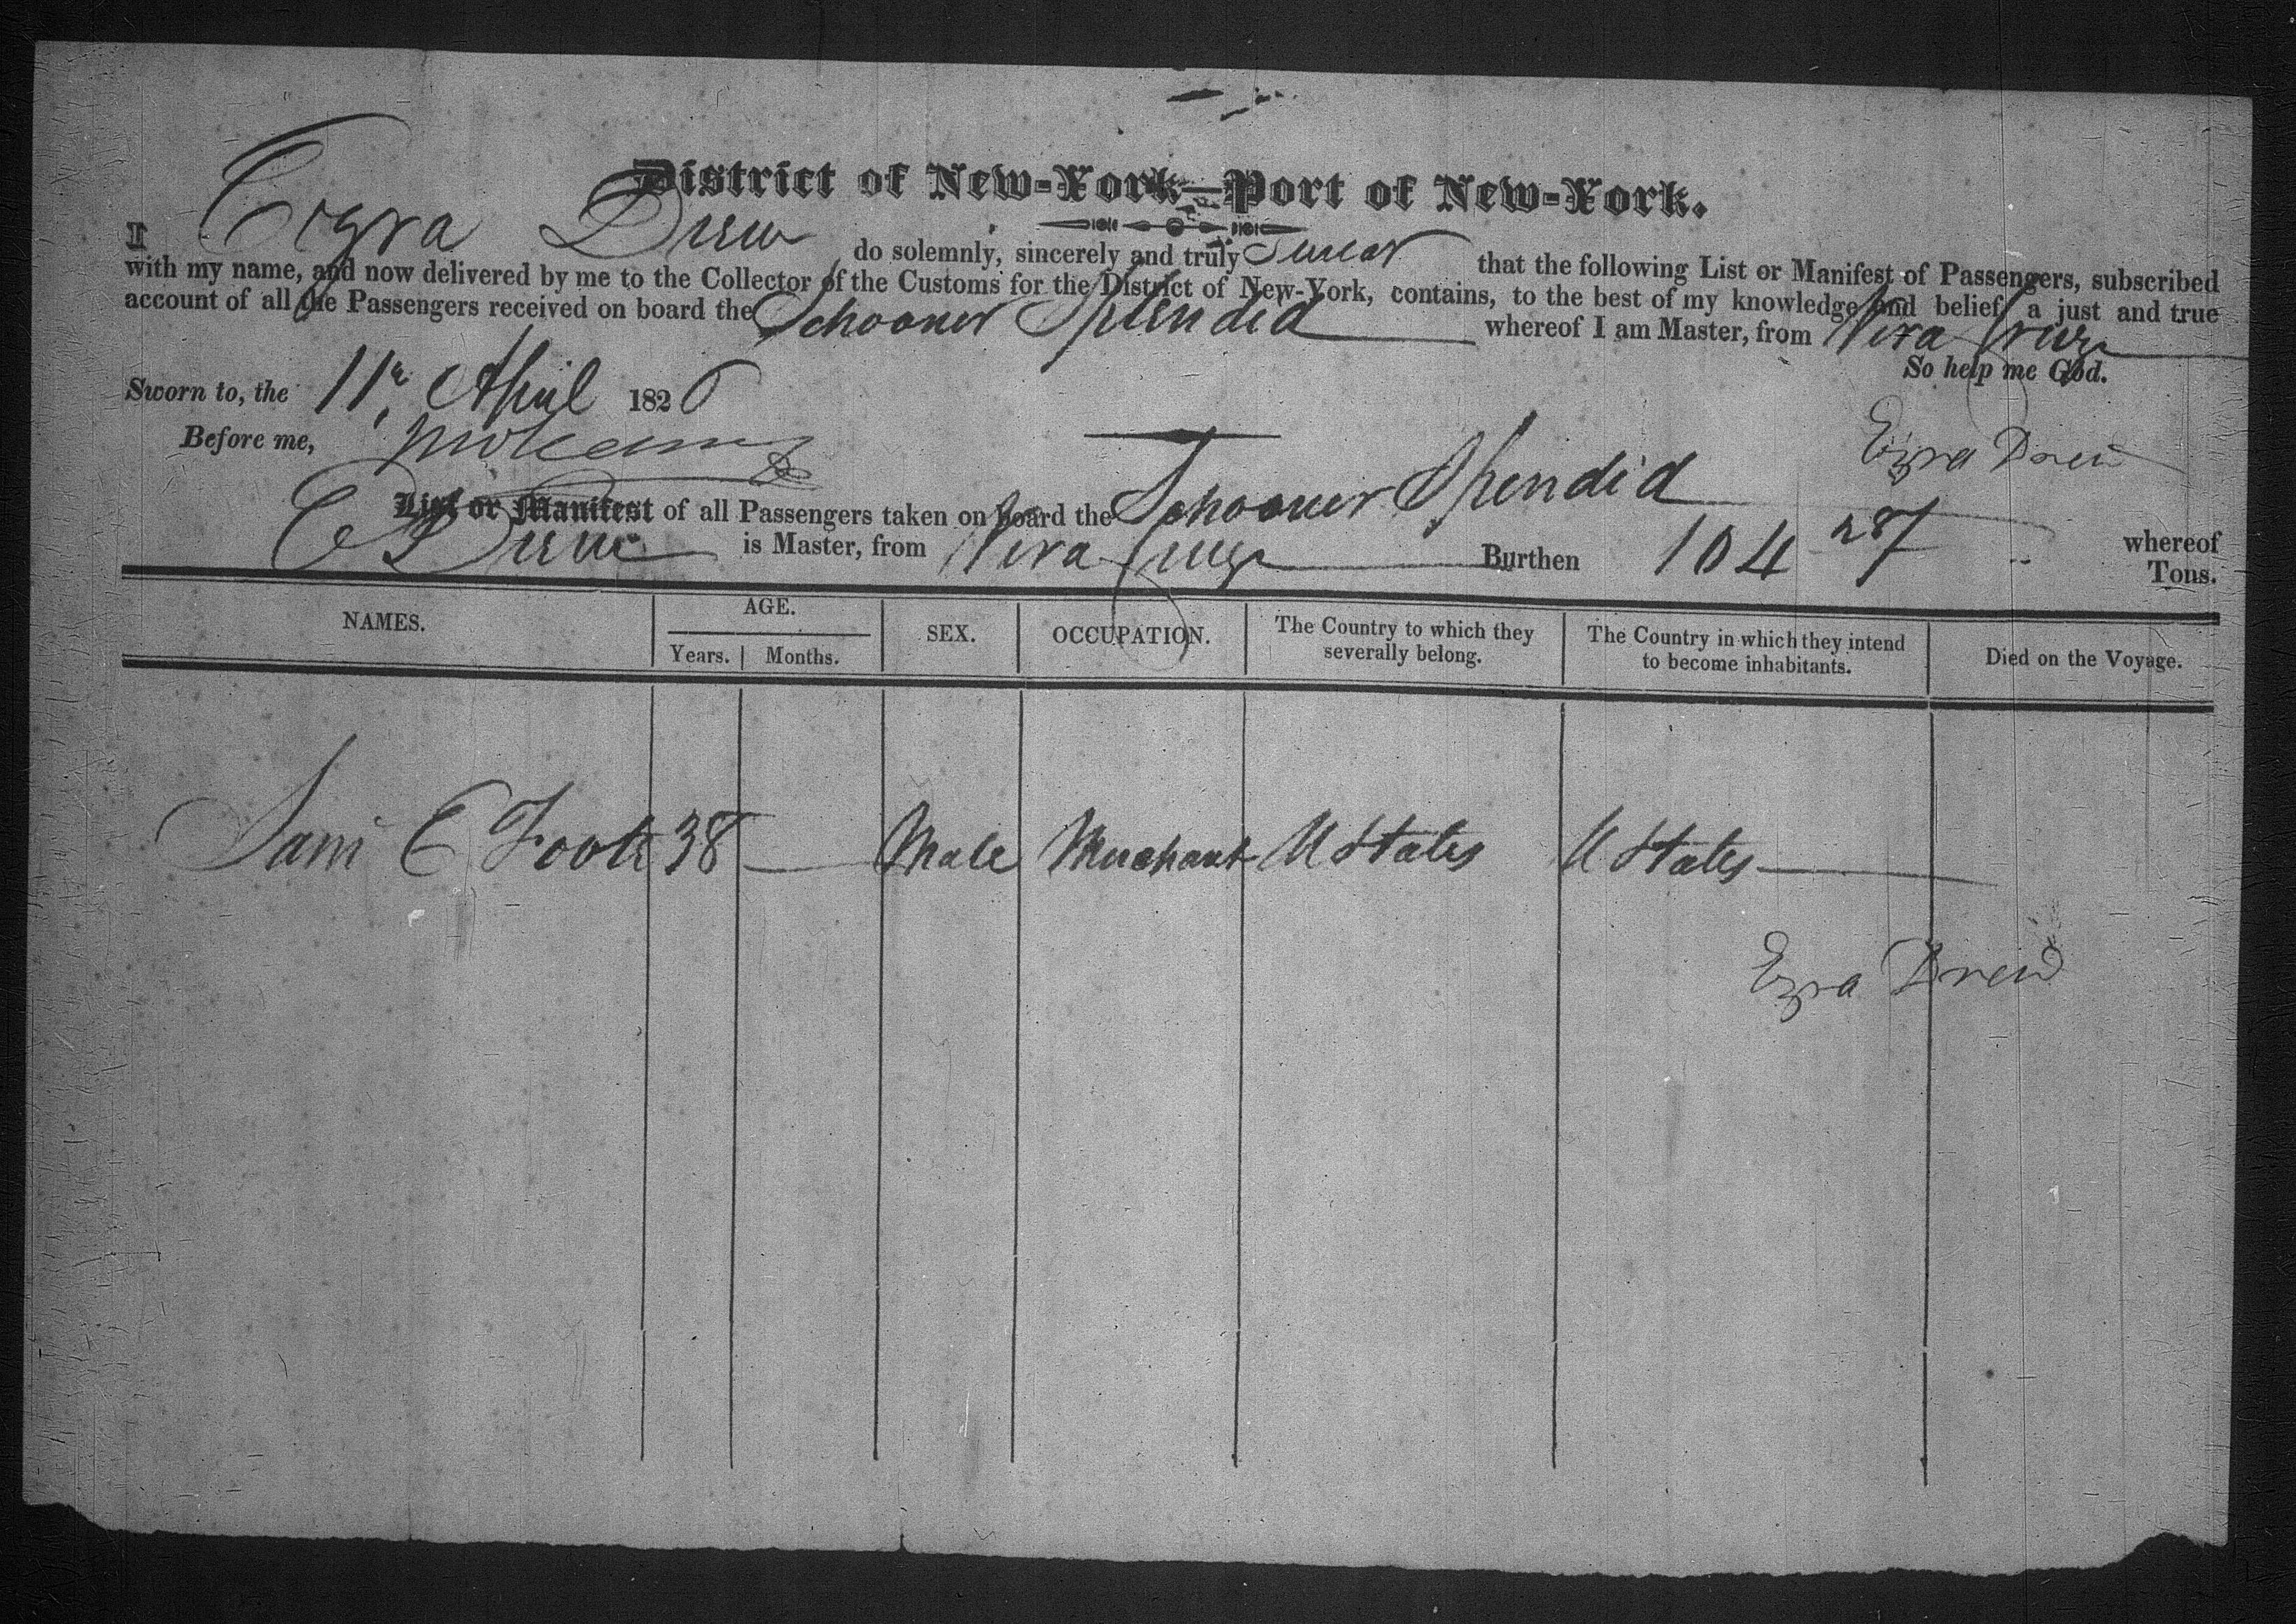 District of New-York—Port of New-York.
I Ezra Drew do solemnly, sincerely and truly Swear that the following List or Manifest of Passengers, subscribed
with my name, and now delivered by me to the Collector of the Customs for the District of New-York, contains, to the best of my knowledge and belief, a just and true
account of all the Passengers received on board the Schooner Splendid whereof I am Master, from Vera Cruz
So help me God.
Sworn to, the 11th April 1826
Before me,
Ezra Drew
List or Manifest of all Passengers taken on board the Schooner Splendid whereof
E Drew is Master, from Vera Cruz Burthen 104 Tons.
NAMES. AGE. SEX. OCCUPATION. The Country to which they severally belong. The Country in which they intend to become inhabitants. Died on the Voyage.
Years. Months.
Sam E Foote 38 — Male Merchant U States U States
Ezra Drew